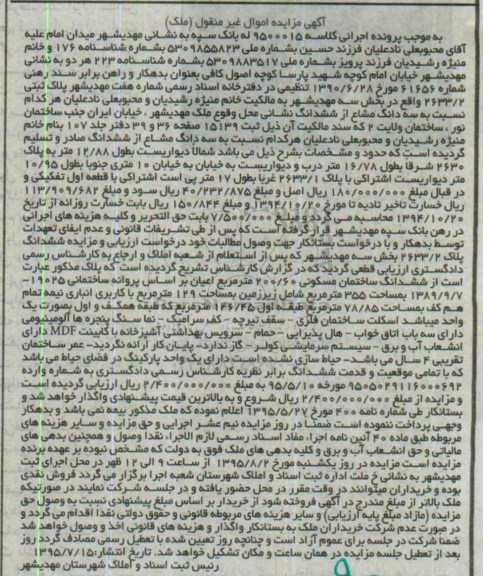 آگهی مزایده اموال غیر منقول (ملک)
به موجب پرونده اجرائی کلاسه ۹۵۰۰۰۱۵ له بانک سپه به نشانی مهدیشهر میدان امام علیه
آقای محبوبعلی نادعلیان فرزند حسین بشماره ملی ۵۳۰۹۸۵۵۸۲۳ بشماره شناسنامه ۱۷۶ و خانم
منیژه رشیدیان فرزند پرویز بشماره ملی ۵۳۰۹۸۸۳۵۱۷ بشماره شناسنامه ۲۲۳ هر دو به نشانی
مهدیشهر خیابان امام کوچه شهید پارسا کوچه اصول کافی بعنوان بدهکار و راهن برابر سند رهنی
شماره ۶۱۶۵۶ مورخ ۱۳۹۰/۶/۲۸ تنظیمی در دفترخانه اسناد رسمی شماره هفت مهدیشهر پلاک ثبتی
۲۶۳۳/۲ واقع در بخش سه مهدیشهر به مالکیت خانم منیژه رشیدیان و محبوبعلی نادعلیان هر کدام
نسبت به سه دانگ مشاع از ششدانگ نشانی محل وقوع ملک مهدیشهر ، خیابان ایران جنب ساختمان
نور ، ساختمان ولایت ۲ که سند مالکیت آن ذیل ثبت ۱۵۱۳۹ صفحه ۳۶ و ۳۹ دفتر جلد ۱۰۷ بنام خانم
منیژه رشیدیان و محبوبعلی نادعلیان هرکدام نسبت به سه دانگ مشاع از ششدانگ صادر و تسلیم
گردیده است که حدود و مشخصات بشرح ذیل می باشد شمالا دیواریست بطول ۱۲/۸۸ متر به پلاک
۲۶۳۰ شرقا بطول ۱۶/۷۸ متر درب و دیواریست به خیابان به خیابان ۱۰ متری جنوبا بطول ۱۰/۹۵
متر دیواریست اشتراکی با پلاک ۲۶۳۳/۱ غربا بطول ۱۷ متر پی است اشتراکی با قطعه اول تفکیکی و
در قبال مبلغ ۱۸۰/۰۰۰/۰۰۰ ریال اصل و مبلغ ۴۰/۲۳۲/۸۷۵ ریال سود و مبلغ ۱۱۳/۹۰۹/۶۸۲
ریال خسارت تاخیر تادیه تا مورخ ۱۳۹۴/۱۰/۲۰ و مبلغ ۱۵۰/۸۴۴ ریال بابت خسارت روزانه از تاریخ
۱۳۹۴/۱۰/۲۰ محاسبه می گردد و مبلغ ۷/۵۰۰/۰۰۰ بابت حق التحریر و کلیه هزینه های اجرائی
در رهن بانک سپه مهدیشهر قرار گرفته است که پس از طی تشریفات قانونی و عدم ایفای تعهدات
توسط بدهکار و با درخواست بستانکار جهت وصول مطالبات خود درخواست ارزیابی و مزایده ششدانگ
پلاک ۲۶۳۳/۲ بخش سه مهدیشهر که پس از استعلام از شعبه املاک و ارجاع به کارشناس رسمی
دادگستری ارزیابی قطعی گردید که در گزارش کارشناس تشریح گردیده است که پلاک مذکور عبارت
است از ششدانگ ساختمان مسکونی ۲۰۰/۶۰ مترمربع اعیان بر اساس پروانه ساختمانی ۱۹۰۲۵-
۱۳۸۹/۹/۷ بمساحت ۳۵۵ مترمربع شامل زیرزمین بمساحت ۱۲۹ مترمربع با کاربری انباری نیمه تمام
هم کف بمساحت ۷۸/۸۵ مترمربع طبقه اول ۱۴۶/۴۵ مترمربع که طبقه همکف و اول بصورت یک
واحد میباشد اسکلت ساختمان فلزی - سقف تیرچه - کف سرامیک - نما سنگ پنجره ها آلومینیومی
دارای سه باب اتاق خواب - هال پذیرایی - حمام - سرویس بهداشتی آشپزخانه با کابینت MDF دارای
انشعاب آب و برق - سیستم سرمایشی کولر - گاز ندارد- پایان کار ارائه نگردید- عمر ساختمان
تقریبی ۴ سال می باشد- حیاط سازی نشده است دارای یک واحد پارکینگ در فضای حیاط می باشد
که با تمامی موقعیت و قدمت ششدانگ برابر نظریه کارشناس رسمی دادگستری به شماره وارده
۹۵۰۵۰۲۹۱۱۶۰۰۰۶۹۲ مورخه ۹۵/۵/۱۰ به مبلغ ۲/۴۰۰/۰۰۰/۰۰۰ ریال ارزیابی گردیده است
و مزایده از مبلغ ۲/۴۰۰/۰۰۰/۰۰۰ ریال شروع و به بالاترین قیمت پیشنهادی واگذار خواهد شد و
بستانکار طی شماره نامه ۴۰۰ مورخ ۱۳۹۵/۵/۲۷ اعلام نموده که ملک مذکور بیمه نمی باشد و بدهکار
وجهی پرداخت ننموده است ضمنا در روز مزایده نیم عشر اجرایی و حق مزایده و سایر هزینه های
مربوطه طبق ماده ۴۰ آئین نامه اجرا، مفاد اسناد رسمی لازم الاجراء نقدا وصول و همچنین بدهی های
مالیاتی و حق انشعاب آب و برق و کلیه بدهی های ملک فوق به دولت که مشخص نبوده بر عهده برنده
مزایده است مزایده در روز یکشنبه مورخ ۱۳۹۵/۸/۲ از ساعت ۹ الی ۱۲ ظهر در محل اجرای ثبت
مهدیشهر به نشانی خ ملت اداره ثبت اسناد و املاک شهرستان شعبه اجرا برگزار می گردد فروش نقدی
بوده و خریداران میتوانند در وقت مقرر در محل حضور یافته و در جلسه شرکت نمایند در صورتیکه
ملک بالاتر از مبلغ مندرج در آگهی فروخته شود از خریدار بر اساس مبلغ پیشنهادی نسبت به وصول حق
مزایده (مازاد مبلغ پایه ارزیابی) و سایر هزینه های مربوطه قانونی و حقوق دولتی نقدا اقدام می گردد و
در صورت عدم شرکت خریداران ملک به بستانکار واگذار و هزینه های قانونی اخذ و وصول خواهد شد
ضمنا شرکت در جلسه برای عموم آزاد است و چنانچه روز تعیین شده با تعطیل رسمی مصادف گردد روز
بعد از تعطیل جلسه مزایده در همان ساعت و مکان تشکیل خواهد شد. تاریخ انتشار: ۱۳۹۵/۷/۱۵
رئیس ثبت اسناد و املاک شهرستان مهدیشهر